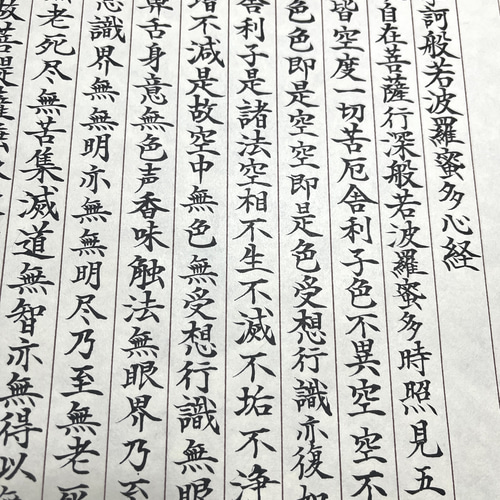 訶般若波羅蜜多心経
自在菩薩行深般若波羅蜜多時照見五
皆空度一切苦厄舎利子色不異空空不
色色即是空空即是色受想行識亦復如
舎利子是諸法空相不生不滅不垢不浄
増不減是故空中無色無受想行識無眼
鼻舌身意無色声香味触法無眼界乃至
意識界無無明亦無無明尽乃至無老死
老死尽無苦集滅道無智亦無得以
故菩提薩